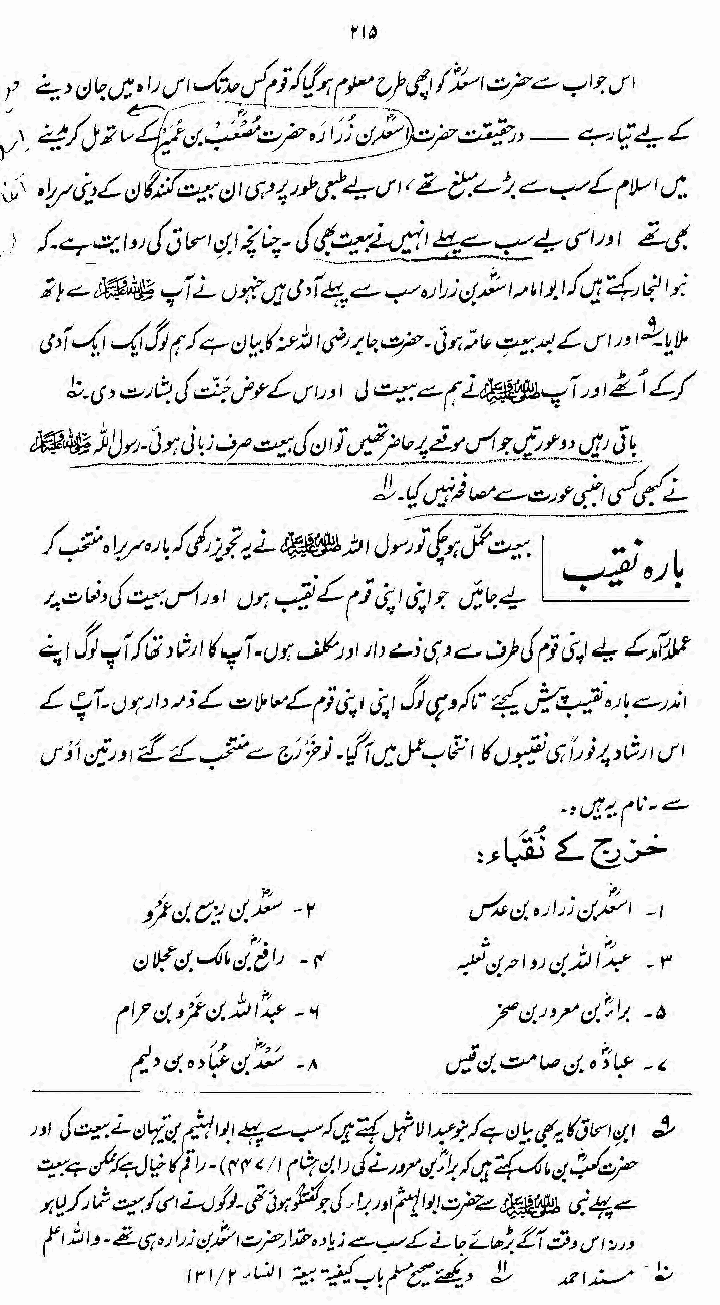 ۲۱۵
اس جواب سے حضرت اسعدؓ کو اچھی طرح معلوم ہو گیا کہ قوم کس حد تک اس راہ میں جان دینے
کے لیے تیار ہے —— درحقیقت حضرت اسعدؓ بن زُرَارَہ حضرت مُصْعَبؓ بن عُمیرؓ کے ساتھ مل کر مدینے
میں اسلام کے سب سے بڑے مبلغ تھے، اس لیے طبعی طور پر وہی ان بیعت کنندگان کے دینی سربراہ
بھی تھے اور اسی لیے سب سے پہلے انہیں نے بیعت بھی کی۔ چنانچہ ابن اسحاق کی روایت ہے۔ کہ
بنو النجار کہتے ہیں کہ ابو امامہ اسعدؓ بن زرارہ سب سے پہلے آدمی ہیں جنہوں نے آپ ﷺ سے ہاتھ
ملایا۔۹ اور اس کے بعد بیعتِ عامہ ہوئی۔ حضرت جابر رضی اللہ عنہ کا بیان ہے کہ ہم لوگ ایک ایک آدمی
کر کے اُٹھے اور آپ ﷺ نے ہم سے بیعت لی اور اس کے عوض جنّت کی بشارت دی۔۱۰
باقی رہیں دو عورتیں جو اس موقعے پر حاضر تھیں تو ان کی بیعت صرف زبانی ہوئی۔ رسول اللہ ﷺ
نے کبھی کسی اجنبی عورت سے مصافحہ نہیں کیا۔۱۱
بارہ نقیب
بیعت مکمل ہو چکی تو رسول اللہ ﷺ نے یہ تجویز رکھی کہ بارہ سربراہ منتخب کر
لیے جائیں جو اپنی اپنی قوم کے نقیب ہوں اور اس بیعت کی دفعات پر
عملدرآمد کے لیے اپنی قوم کی طرف سے وہی ذمے دار اور مکلف ہوں۔ آپ کا ارشاد تھا کہ آپ لوگ اپنے
اندر سے بارہ نقیب پیش کیجئے تاکہ وہی لوگ اپنی اپنی قوم کے معاملات کے ذمہ دار ہوں۔ آپؐ کے
اس ارشاد پر فوراً ہی نقیبوں کا انتخاب عمل میں آ گیا۔ نو خَزْرَج سے منتخب کئے گئے اور تین اَوْس
سے۔ نام یہ ہیں ہ۔
خزرج کے نُقَبَاء:
۱۔ اسعدؓ بن زرارہ بن عدس
۲۔ سعدؓ بن ربیع بن عمرو
۳۔ عبدؓ اللہ بن رواحہ بن ثعلبہ
۴۔ رافعؓ بن مالک بن عجلان
۵۔ براءؓ بن معرور بن صخر
۶۔ عبدؓ اللہ بن عمرو بن حرام
۷۔ عبادہؓ بن صامت بن قیس
۸۔ سعدؓ بن عُبادہ بن دلیم
۹ ابن اسحاق کا یہ بھی بیان ہے کہ بنو عبد الاشہل کہتے ہیں کہ سب سے پہلے ابو الہشیم بن تیہان نے بیعت کی اور
حضرت کعبؓ بن مالک کہتے ہیں کہ براءؓ بن معرور نے کی (ابن ہشام ۱/۴۴۷)۔ راقم کا خیال ہے کہ ممکن ہے بیعت
سے پہلے نبی ﷺ سے حضرت ابو الہیثم اور براء کی جو گفتگو ہوئی تھی۔ لوگوں نے اسی کو بیعت شمار کر لیا ہو
ورنہ اس وقت آگے بڑھائے جانے کے سب سے زیادہ حقدار حضرت اسعدؓ بن زرارہ ہی تھے۔ واللہ اعلم
۱۰ مسند احمد ۱۱ دیکھئے صحیح مسلم باب کیفیۃ بیعۃ النساء ۲/۱۳۱